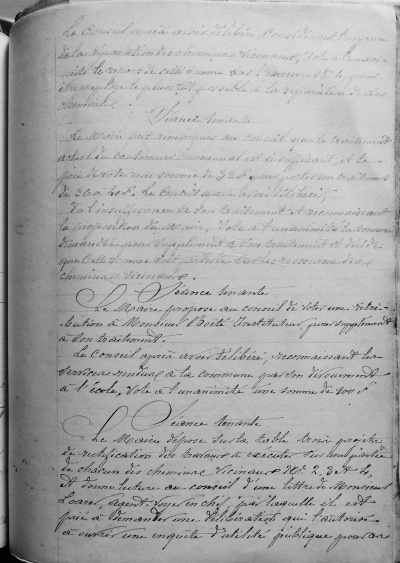 Le Conseil après avoir délibéré, Considérant l'urgence
de la réparation des chemins vicinaux, Vote à l'unani-
mité le report de cette somme sur l'exercice pour
être employée le plus tôt possible à la réparation de ces
chemins.
Séance tenante
Le Maire fait remarquer au conseil que le traitement
actuel du cantonnier communal est insuffisant, et le
prie de voter une somme de 32f pour porter son traitement
de à 40f. Le Conseil après avoir délibéré,
Vu l'insuffisance de son traitement et reconnaissant
la proposition du Maire, Vote à l'unanimité la somme
demandée pour supplément à son traitement et décide
que cette somme soit portée sur les ressources des
chemins vicinaux.
Séance tenante
Le Maire propose au conseil de voter une rétri-
bution à Monsieur Instituteur, pour supplément
à son traitement.
Le Conseil après avoir délibéré, reconnaissant les
services rendus à la commune par son dévouement
à l'école, Vote à l'unanimité une somme de f
Séance tenante
Le Maire dépose sur la table trois projets
de rectification des travaux à exécuter sur une partie
de chacun des chemins vicinaux Nos 2, 3 et 4,
et donne lecture au conseil d'une lettre de Monsieur
agent-voyer en chef, par laquelle il est
prié à demander une délibération qui l'autorise
à ouvrir une enquête d'utilité publique pour ces